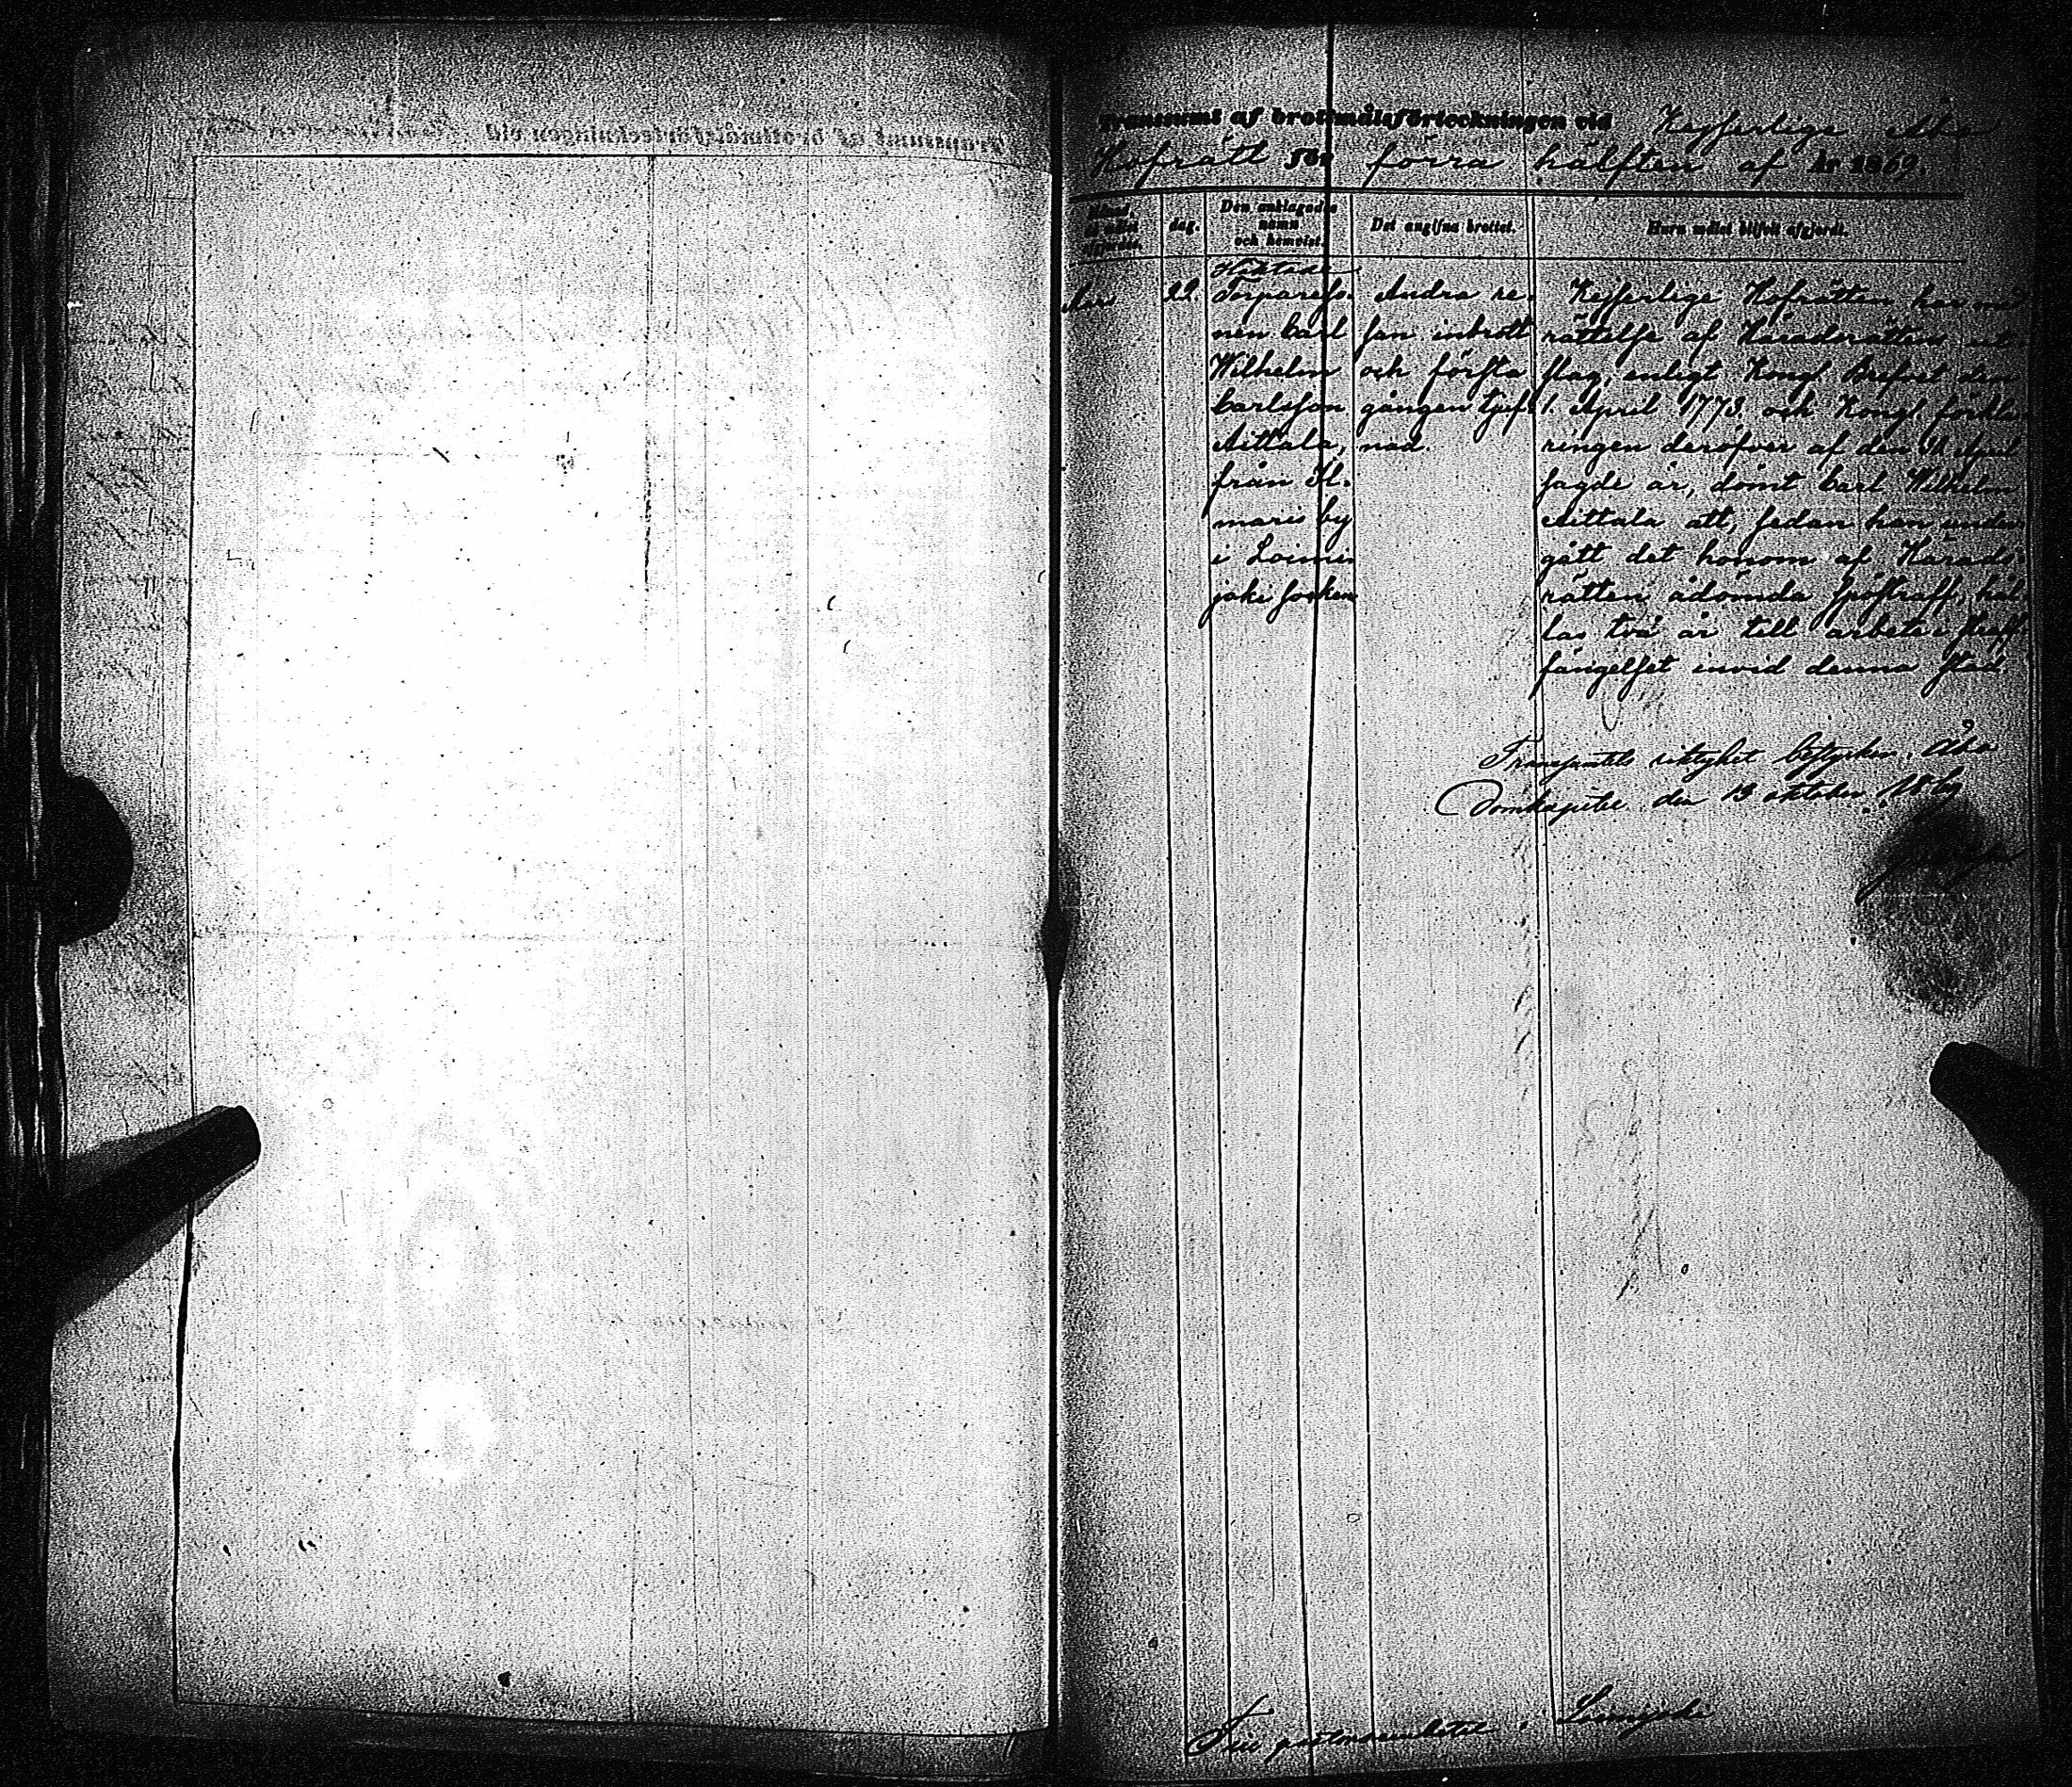 Transsumt af brottmålsförteckningen vid Kejserlige Åbo
Hofrätt för förra hälften af år 1869.
Månad, då målet afgjordts.
dag.
Den anklagades namn och hemvist.
Det angifna brottet.
Huru målet blifvit afgjordt.
22.
Häktade
Torpareso-
nen Carl
Wilhelm
Carlsson
Aittala,
från Il-
maris by
i Loimi-
joki socken
Andra re-
san inbrott
och första
gången tjuf-
nad.
Kejserlige Hofrätten har med
rättelse af Häradsrättens ut-
slag, enligt Kongl. Brefvet den
1. April 1773 och Kongl. förkla-
ringen deröfver af den April
sagde år, dömt Carl Wilhelm
Aittala att, sedan han under-
gått det honom af Härads-
rätten ådömda spöstraff, hål-
las två år till arbete i straff-
fängelset invid denna stad
Transumtets riktighet bestyrker. Åbo
Domkapitel den 13 oktober 1869
Till pastorsembetet i Loimijoki